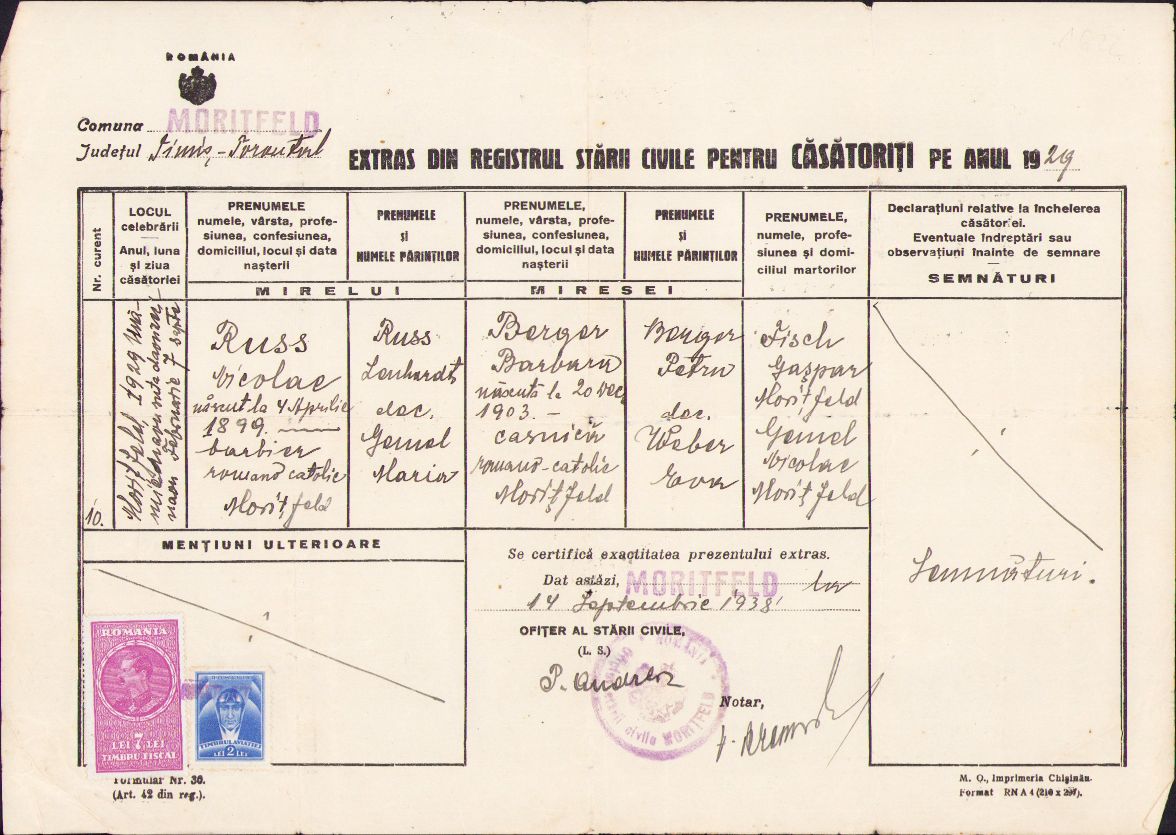 ROMÂNIA
Comuna MORITFELD
Județul Timiș-Torontal
EXTRAS DIN REGISTRUL STĂRII CIVILE PENTRU CĂSĂTORIȚI PE ANUL 1929
Nr. curent
LOCUL
celebrării
Anul, luna
și ziua
căsătoriei
PRENUMELE
numele, vârsta, profe-
siunea, confesiunea,
domiciliul, locul și data
nașterii
PRENUMELE
și
NUMELE PĂRINȚILOR
MIRELUI
PRENUMELE,
numele, vârsta, pro-
siunea, confesiunea,
domiciliul, locul și data
nașterii
PRENUMELE
și
NUMELE PĂRINȚILOR
MIRESEI
PRENUMELE,
numele, profe-
siunea și domi-
ciliul martorilor
Declarațiuni relative la încheierea
căsătoriei.
Eventuale îndreptări sau
observațiuni înainte de semnare
SEMNĂTURI
10.
Moritfeld, 1929 una
Februarie 7
Russ
Nicolae
născut la 4 Aprilie
1899.
barbier
romano catolic
Moriț feld
Russ
Lenhardt
dec.
Gemel
Maria
Berger
Barbara
născută la 20 Dec
1903. -
casnică
romano-catolic
Moriț feld
Berger
Petru
dec.
Weber
Eva
Fisch
Gașpar
Moriț feld
Gemel
Nicolae
Moriț feld
Semnături.
MENȚIUNI ULTERIOARE
Se certifică exactitatea prezentului extras.
Dat astăzi, MORITFELD la
14 Septembrie 1938
OFIȚER AL STĂRII CIVILE,
(L. S.)
Notar,
ROMANIA
LEI 7 LEI
TIMBRU FISCAL
TIMBRUL AVIAȚIEI
LEI 2 LEI
ROMÂNIA
civila MORITFELD
Formular Nr. 36.
(Art. 42 din reg.).
M. O., Imprimeria Chișinău.
Format RN A 4 (210 x 297).